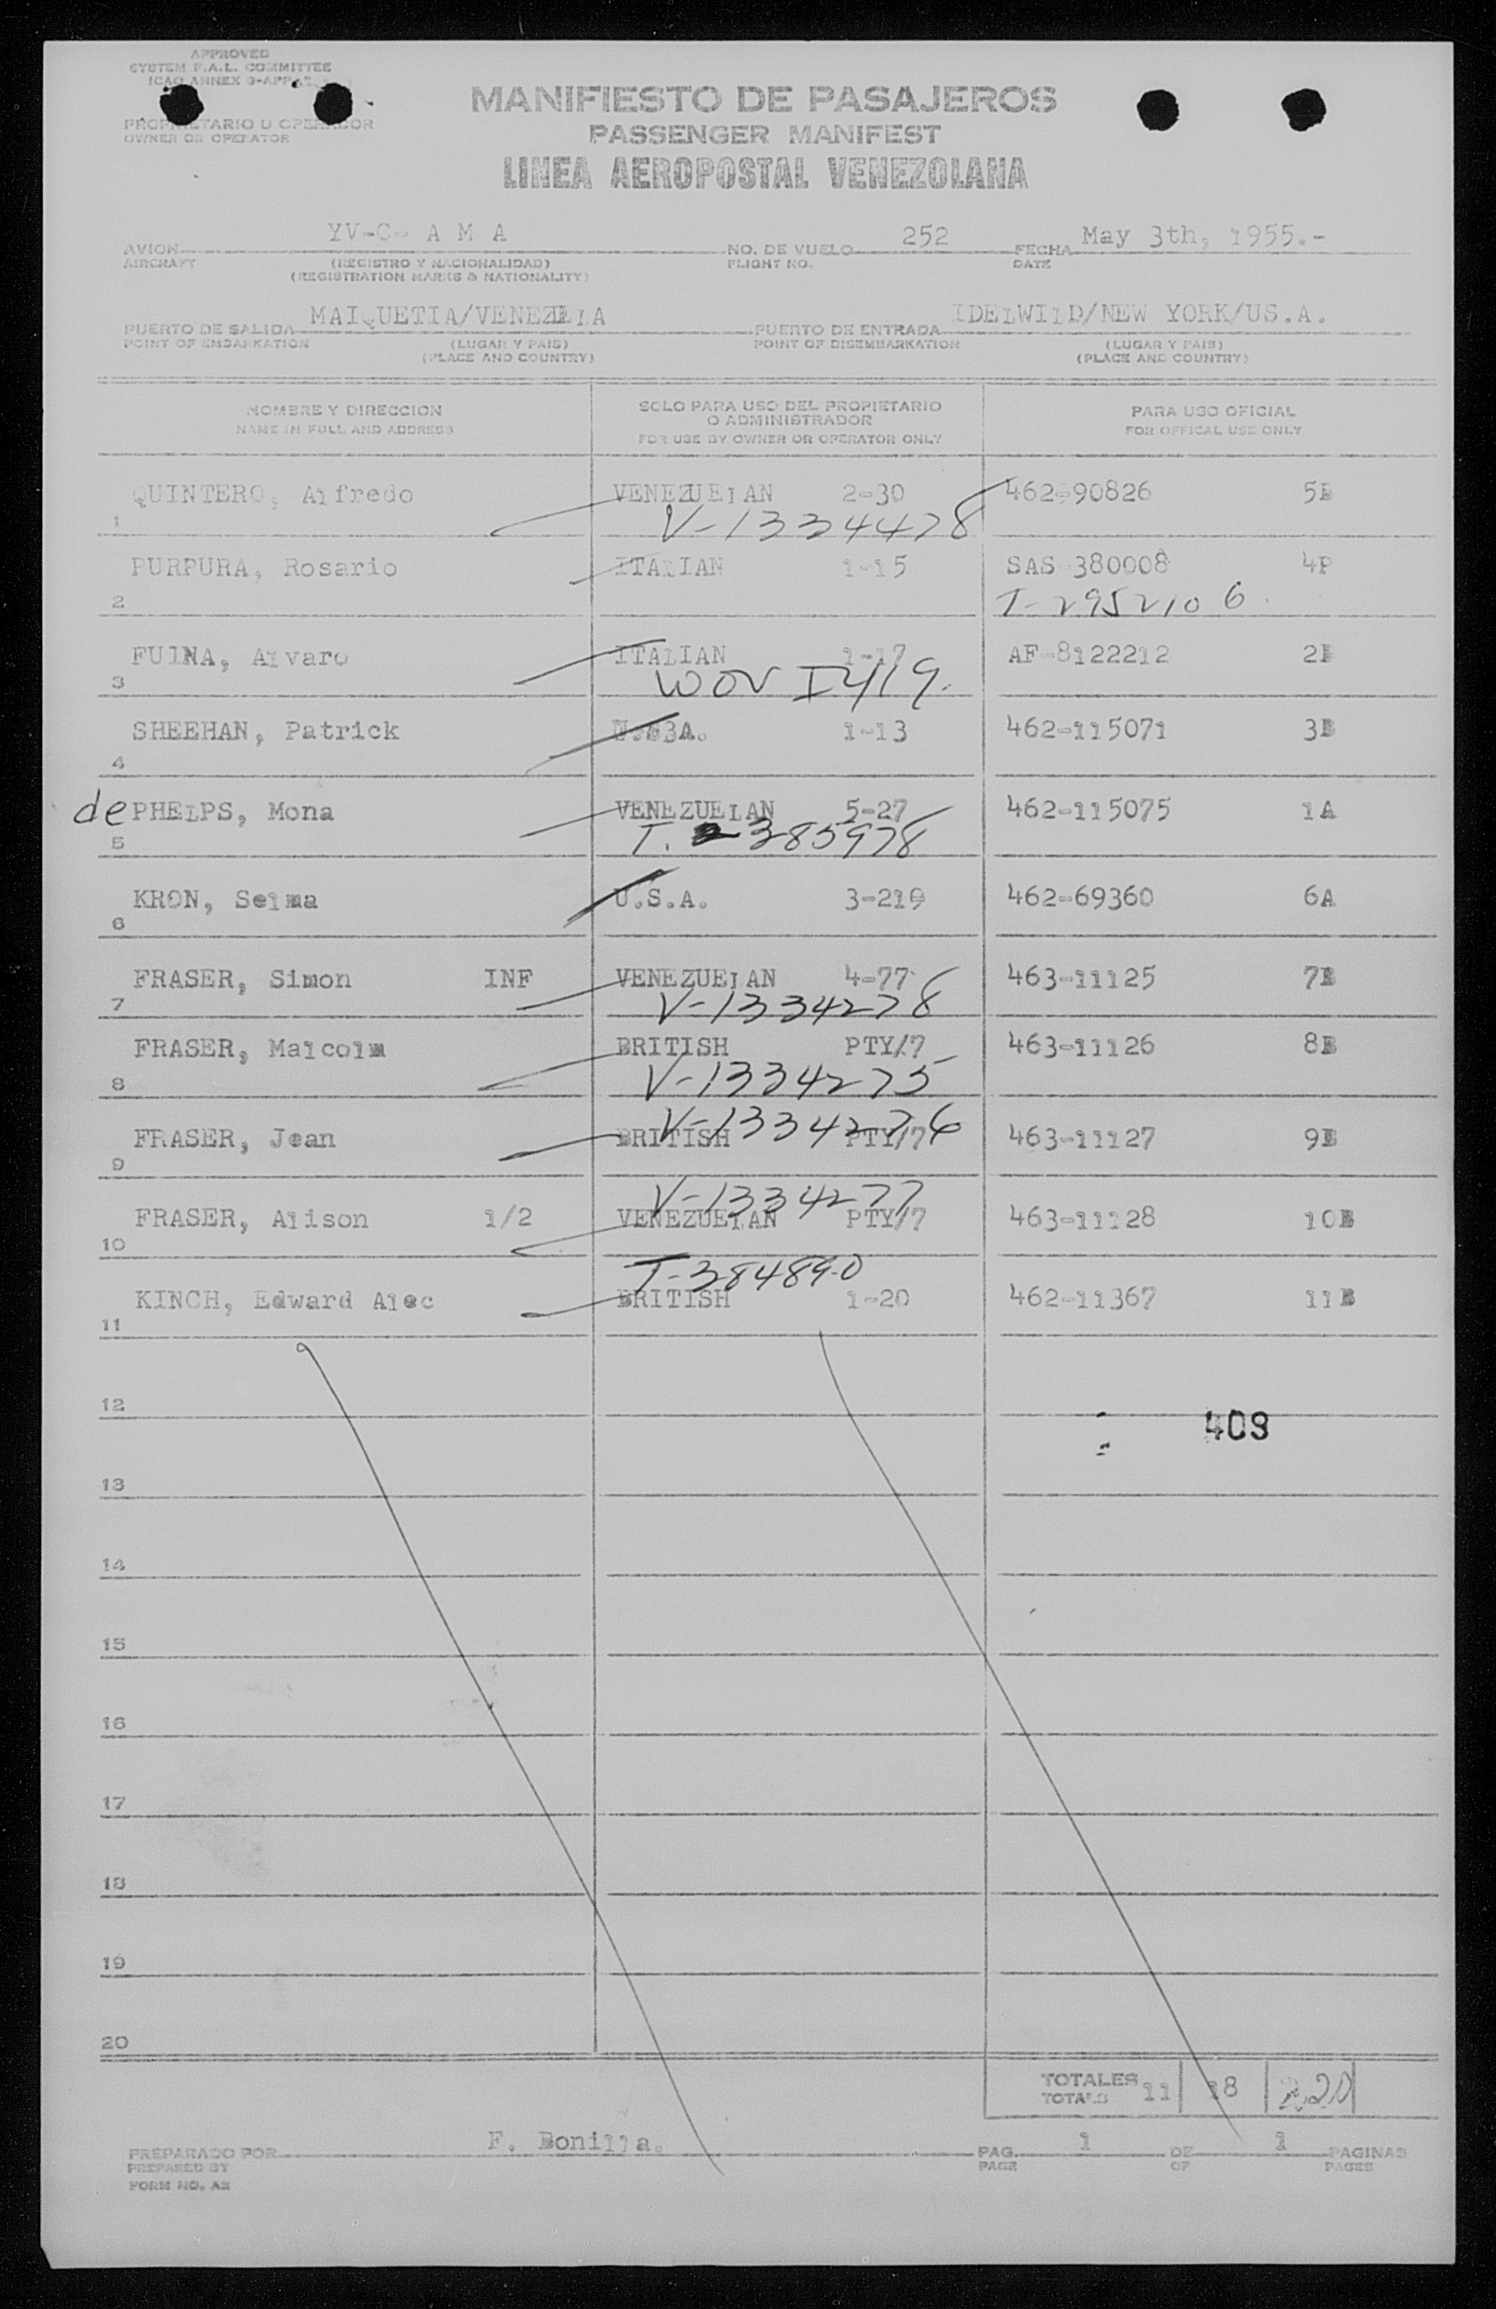 APPROVED
SYSTEM F.A.L. COMMITTEE
ICAO ANNEX 9-APP.
PROPIETARIO U OPERADOR
OWNER OR OPERATOR
MANIFIESTO DE PASAJEROS
PASSENGER MANIFEST
LINEA AEROPOSTAL VENEZOLANA
AVION YV-C- A M A NO. DE VUELO 252 FECHA May 3th, 1955.-
AIRCRAFT (REGISTRO Y NACIONALIDAD) FLIGHT NO. DATE
(REGISTRATION MARKS & NATIONALITY)
PUERTO DE SALIDA MAIQUETIA/VENEZUELA PUERTO DE ENTRADA IDELWILD/NEW YORK/US.A.
POINT OF EMBARKATION (LUGAR Y PAIS) POINT OF DISEMBARKATION (LUGAR Y PAIS)
(PLACE AND COUNTRY) (PLACE AND COUNTRY)
NOMBRE Y DIRECCION SOLO PARA USO DEL PROPIETARIO O ADMINISTRADOR PARA USO OFICIAL
NAME IN FULL AND ADDRESS FOR USE BY OWNER OR OPERATOR ONLY FOR OFFICAL USE ONLY
1 QUINTERO, Alfredo VENEZUELAN 2-30 462-90826 5B
V-1334478
2 PURPURA, Rosario ITALIAN 1-15 SAS-380008 4P
T-2952106
3 FUINA, Alvaro ITALIAN 1-17 AF-8122212 2B
WOV I419.
4 SHEEHAN, Patrick U.S.A. 1-13 462-115071 3B
5 de PHELPS, Mona VENEZUELAN 5-27 462-115075 1A
T. 2385978
6 KRON, Selma U.S.A. 3-219 462-69360 6A
7 FRASER, Simon INF VENEZUELAN 4-77 463-11125 7B
V-1334278
8 FRASER, Malcolm BRITISH PTY/7 463-11126 8B
V-1334275
V-1334276
9 FRASER, Jean BRITISH PTY/7 463-11127 9B
V-1334277
10 FRASER, Alison 1/2 VENEZUELAN PTY/7 463-11128 10B
T-384890
11 KINCH, Edward Alec BRITISH 1-20 462-11367 11B
12
409
13
14
15
16
17
18
19
20
TOTALES 11 18 220
TOTALS
PREPARADO POR F. Bonilla. PAG. 1 DE 1 PAGINAS
PREPARED BY PAGE OF PAGES
FORM NO. A2